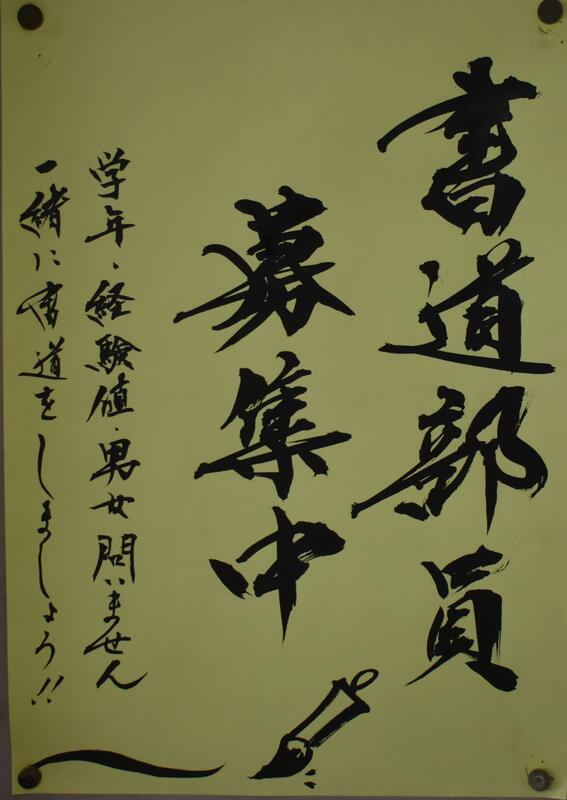 書道部員
募集中
学年、経験値・男女問いません
一緒に書道をしましょう!!